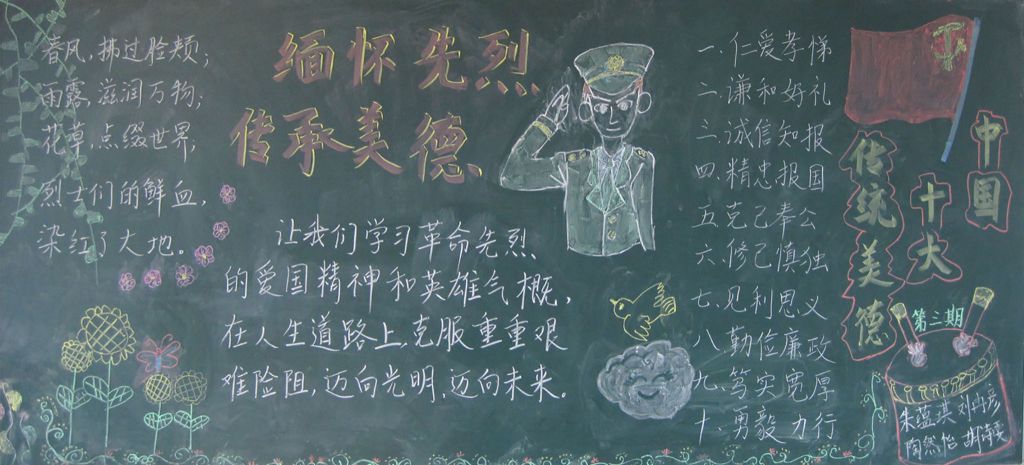 春风,拂过脸颊;
雨露,滋润万物;
花草,点缀世界,
烈士们的鲜血,
染红了大地。
缅怀先烈
传承美德
让我们学习革命先烈
的爱国精神和英雄气概,
在人生道路上,克服重重艰
难险阻,迈向光明,迈向未来。
一、仁爱孝悌
二、谦和好礼
三、诚信知报
四、精忠报国
五、克己奉公
六、修己慎独
七、见利思义
八、勤俭廉政
九、笃实宽厚
十、勇毅力行
中国
十大
传统美德
第三期
朱蕴淇
陶然怡